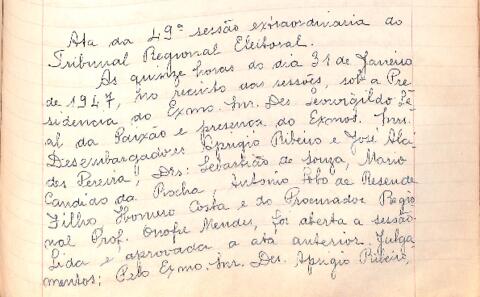 Ata da 49ª sessão extraordinaria do
Tribunal Regional Eleitoral.
As quinze horas do dia 31 de Janeiro
de 1947, no recinto das sessões, sob a Pre-
sidencia do Exmo. Snr. Des. Leovigildo Le-
al da Paixão e presença do Exmos. Snrs.
Desembargadores Aprigio Ribeiro e José Alci-
des Pereira, Drs. Sebastião de Souza, Mario
Candido da Rocha, Antonio Lobo de Resende
Filho Homero Costa e do Procurador Regio-
nal Prof. Onofre Mendes, foi aberta a sessão
Lida e aprovada a ata anterior. Julga-
mentos: Pelo Exmo. Snr. Des. Aprigio Ribeiro,